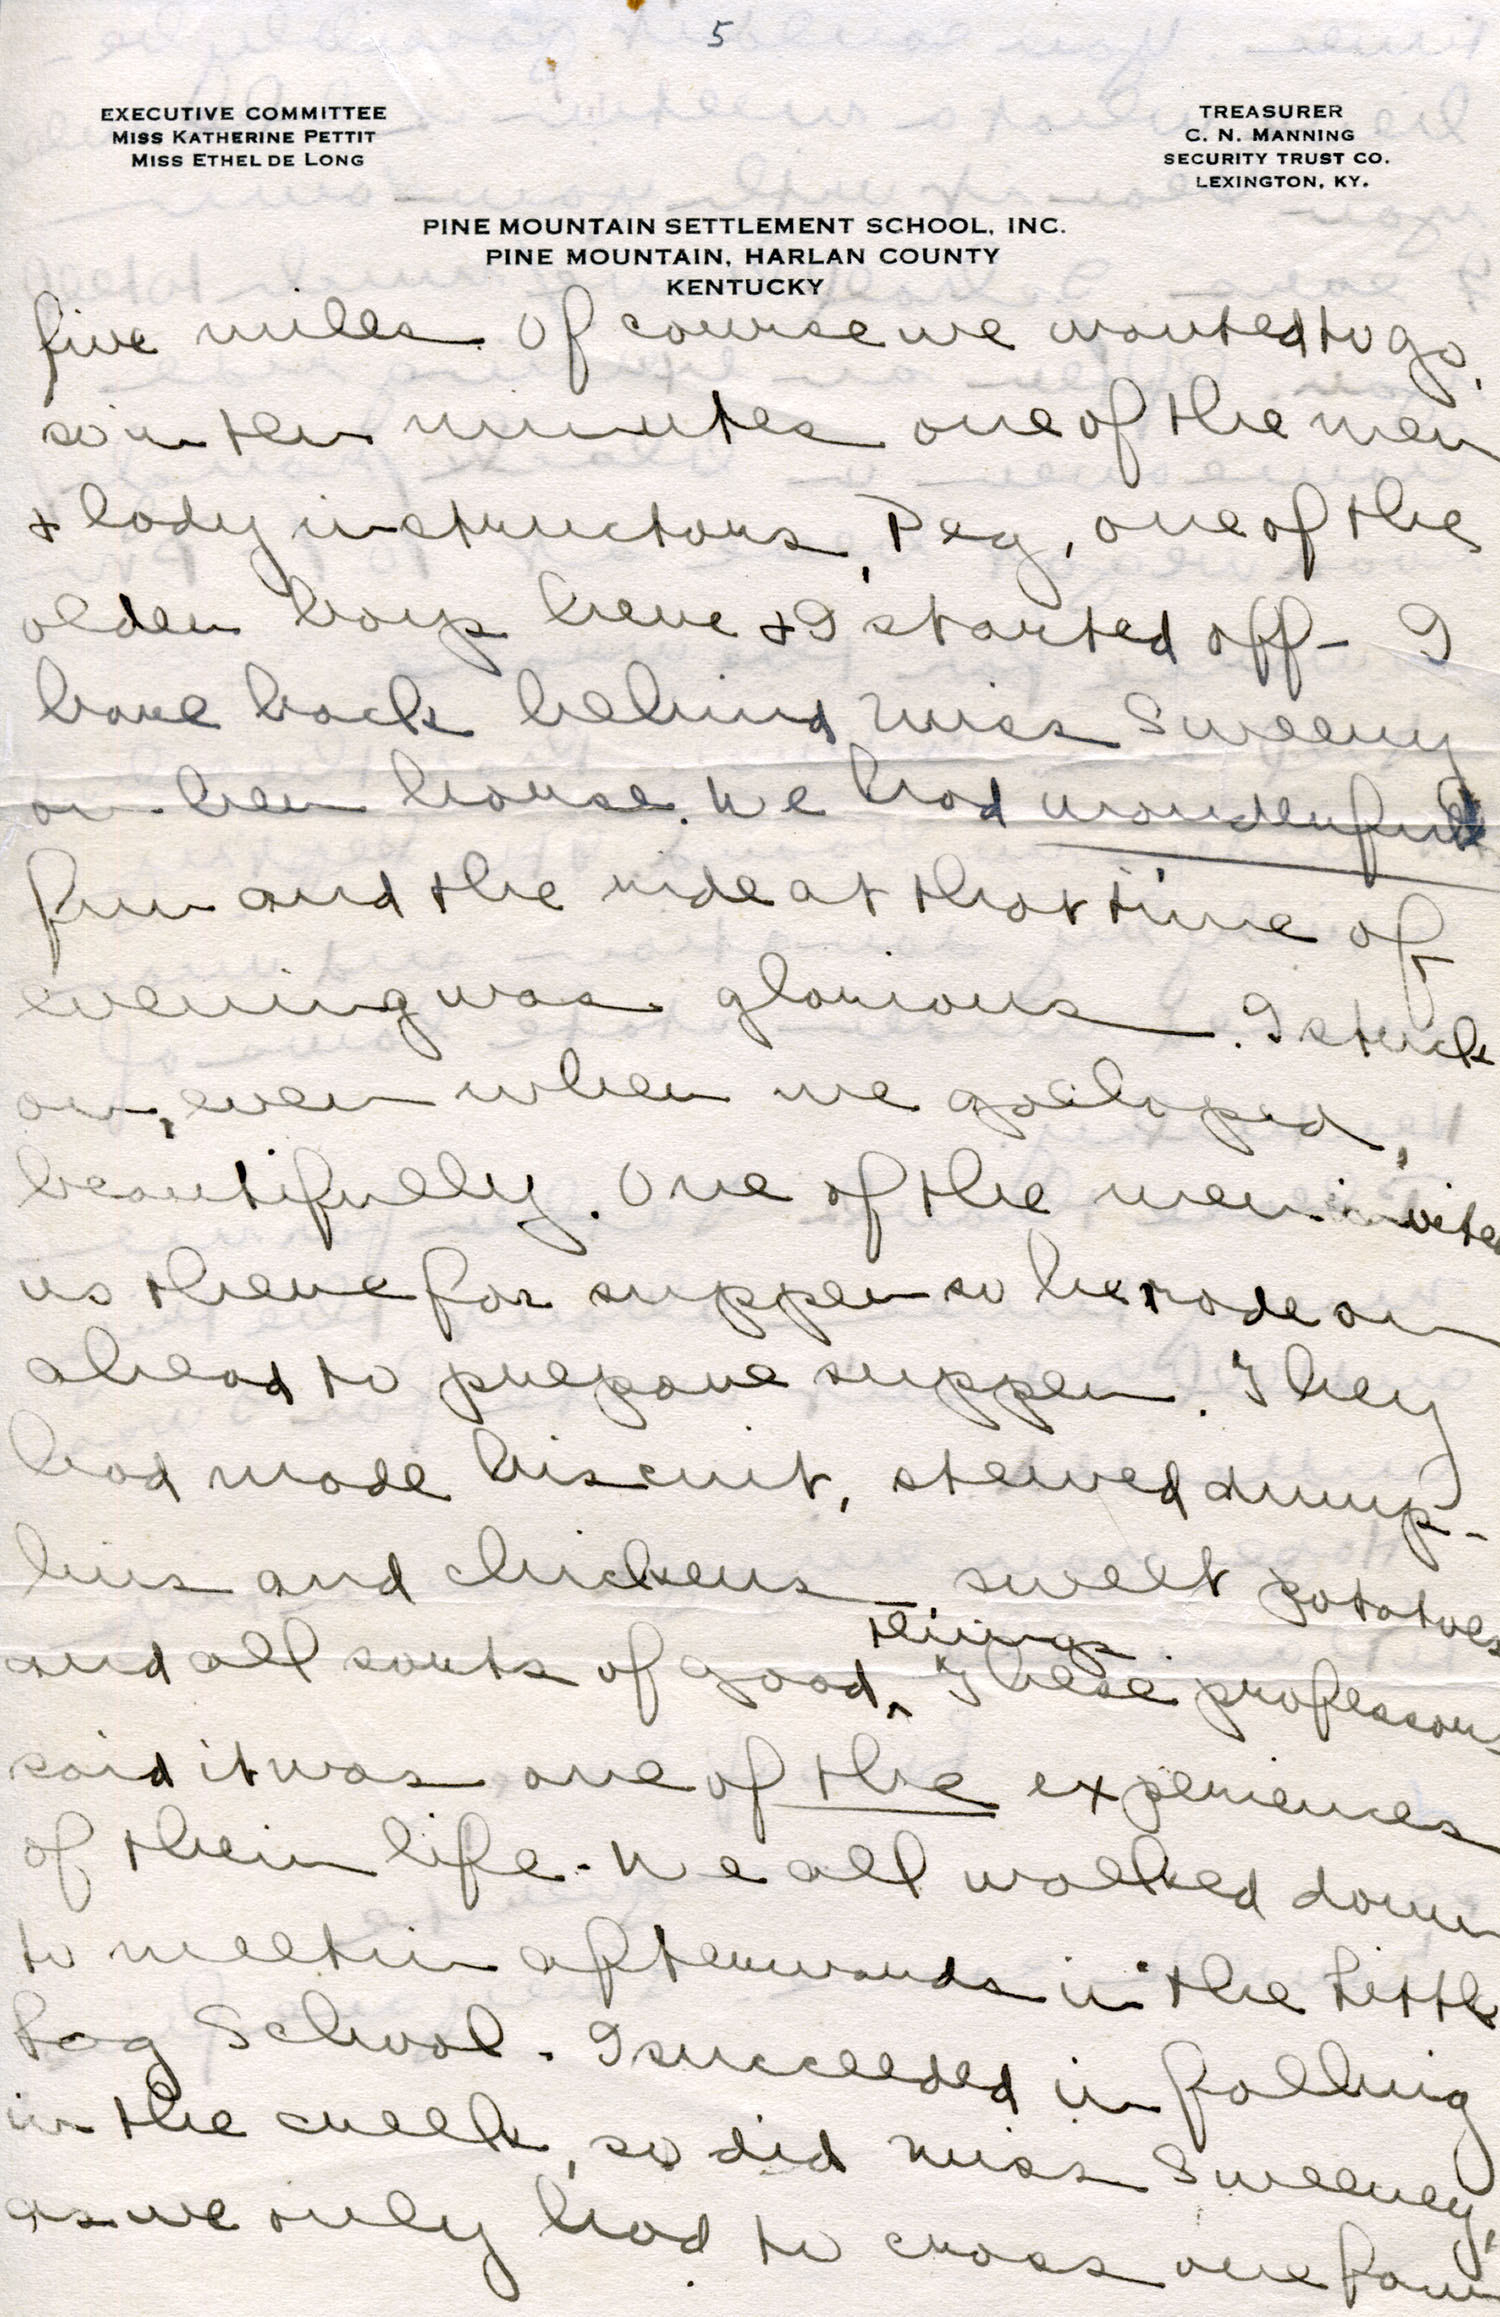 5
EXECUTIVE COMMITTEE
MISS KATHERINE PETTIT
MISS ETHEL DE LONG
TREASURER
C. N. MANNING
SECURITY TRUST CO.
LEXINGTON, KY.
PINE MOUNTAIN SETTLEMENT SCHOOL, INC.
PINE MOUNTAIN, HARLAN COUNTY
KENTUCKY
five miles. Of course we wanted to go,
so in ten minutes one of the men
+ lady instructors, Peg, one of the
older boys here + I started off - I
bare back behind Miss Sweeny
on her horse. We had wonderful
fun and the ride at that time of
evening was glorious. I stuck
on, even when we galloped,
beautifully. One of the men invited
us there for supper so he rode on
ahead to prepare supper. They
had made biscuit, stewed dump-
lins and chickens, sweet potatoes
and all sorts of good things. These professors
said it was one of the experiences
of their life. We all walked down
to meetin afterwards in the Little
Log School. I succeeded in falling
in the creek, so did Miss Sweeney,
as we only had to cross one